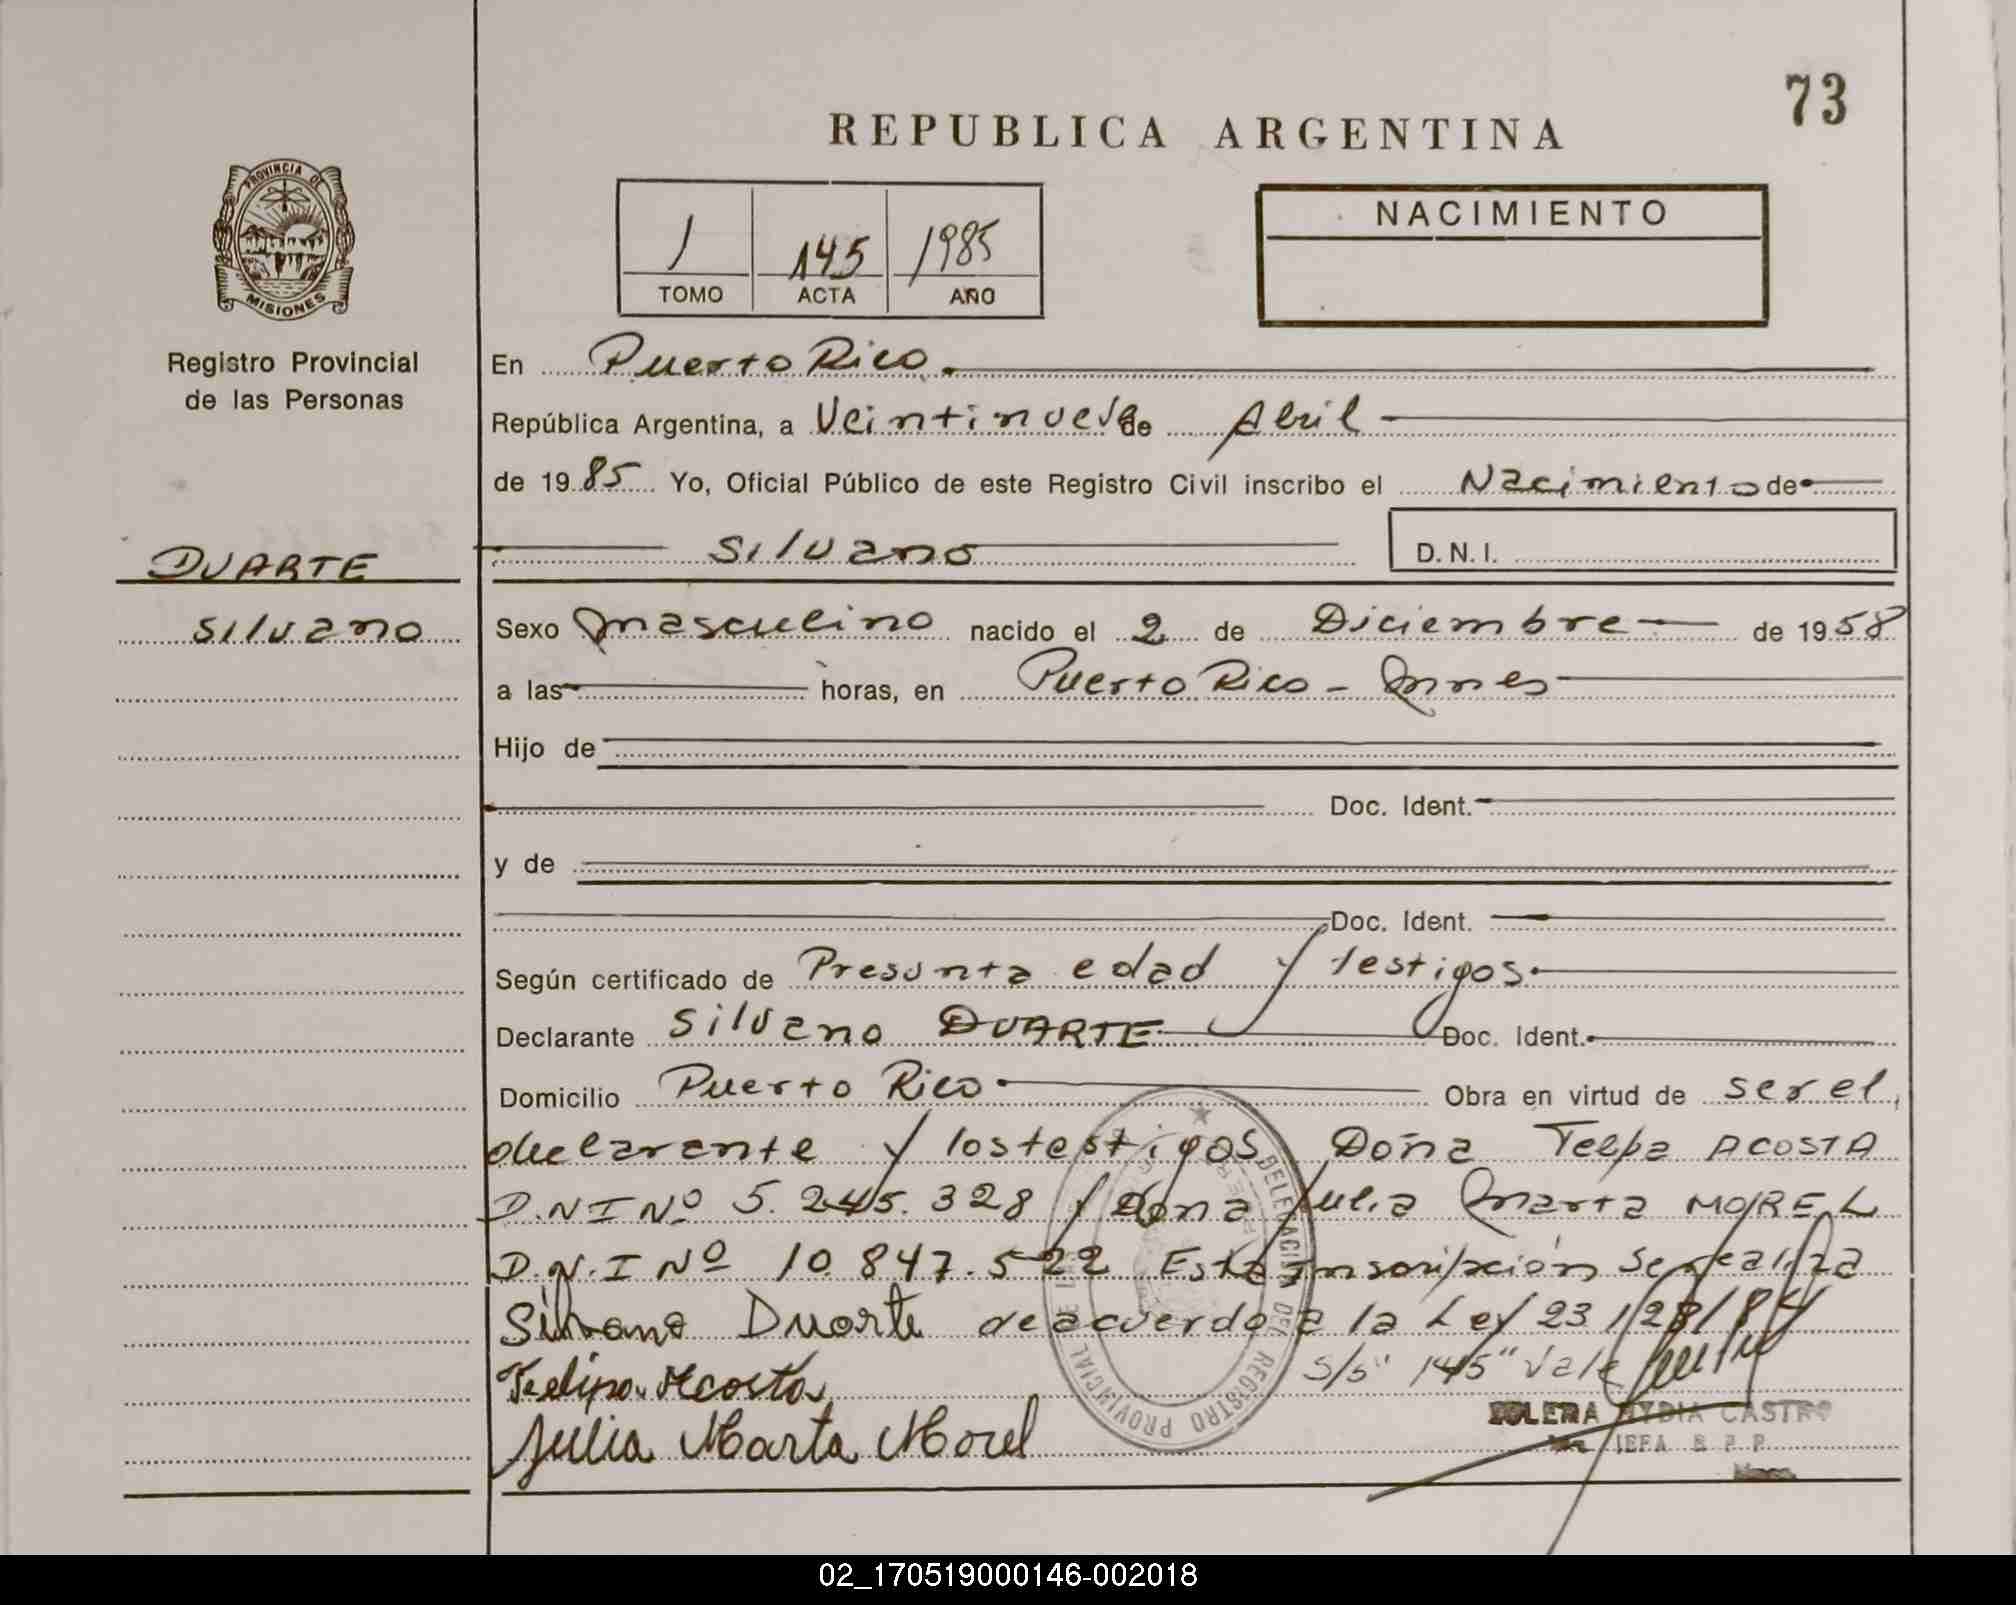 73
REPUBLICA ARGENTINA
PROVINCIA DE
MISIONES
1 145 1985
TOMO ACTA AÑO
NACIMIENTO
Registro Provincial
de las Personas
En Puerto Rico.
República Argentina, a Veintinueve de Abril
de 1985 Yo, Oficial Público de este Registro Civil inscribo el Nacimiento de
DUARTE
Silvano
D.N.I.
Silvano
Sexo masculino nacido el 2 de Diciembre de 1958
a las horas, en Puerto Rico - Mnes
Hijo de
Doc. Ident.
y de
Doc. Ident.
Según certificado de Presunta edad y testigos.
Declarante Silvano DUARTE Doc. Ident.
Domicilio Puerto Rico Obra en virtud de ser el
declarante y los testigos Doña ACOSTA
D.N.I Nº 5.245.328 y Doña Julia Marta MOREL
D.N.I Nº 10.847.522 Esta Inscripción se realiza
Silvano Duarte de acuerdo a la Ley 23128/84
Acosta
S/s "145" Vale
Julia Marta Morel
DELEGACION DEL REGISTRO PROVINCIAL DE
CASTRO
JEFA
02_170519000146-002018